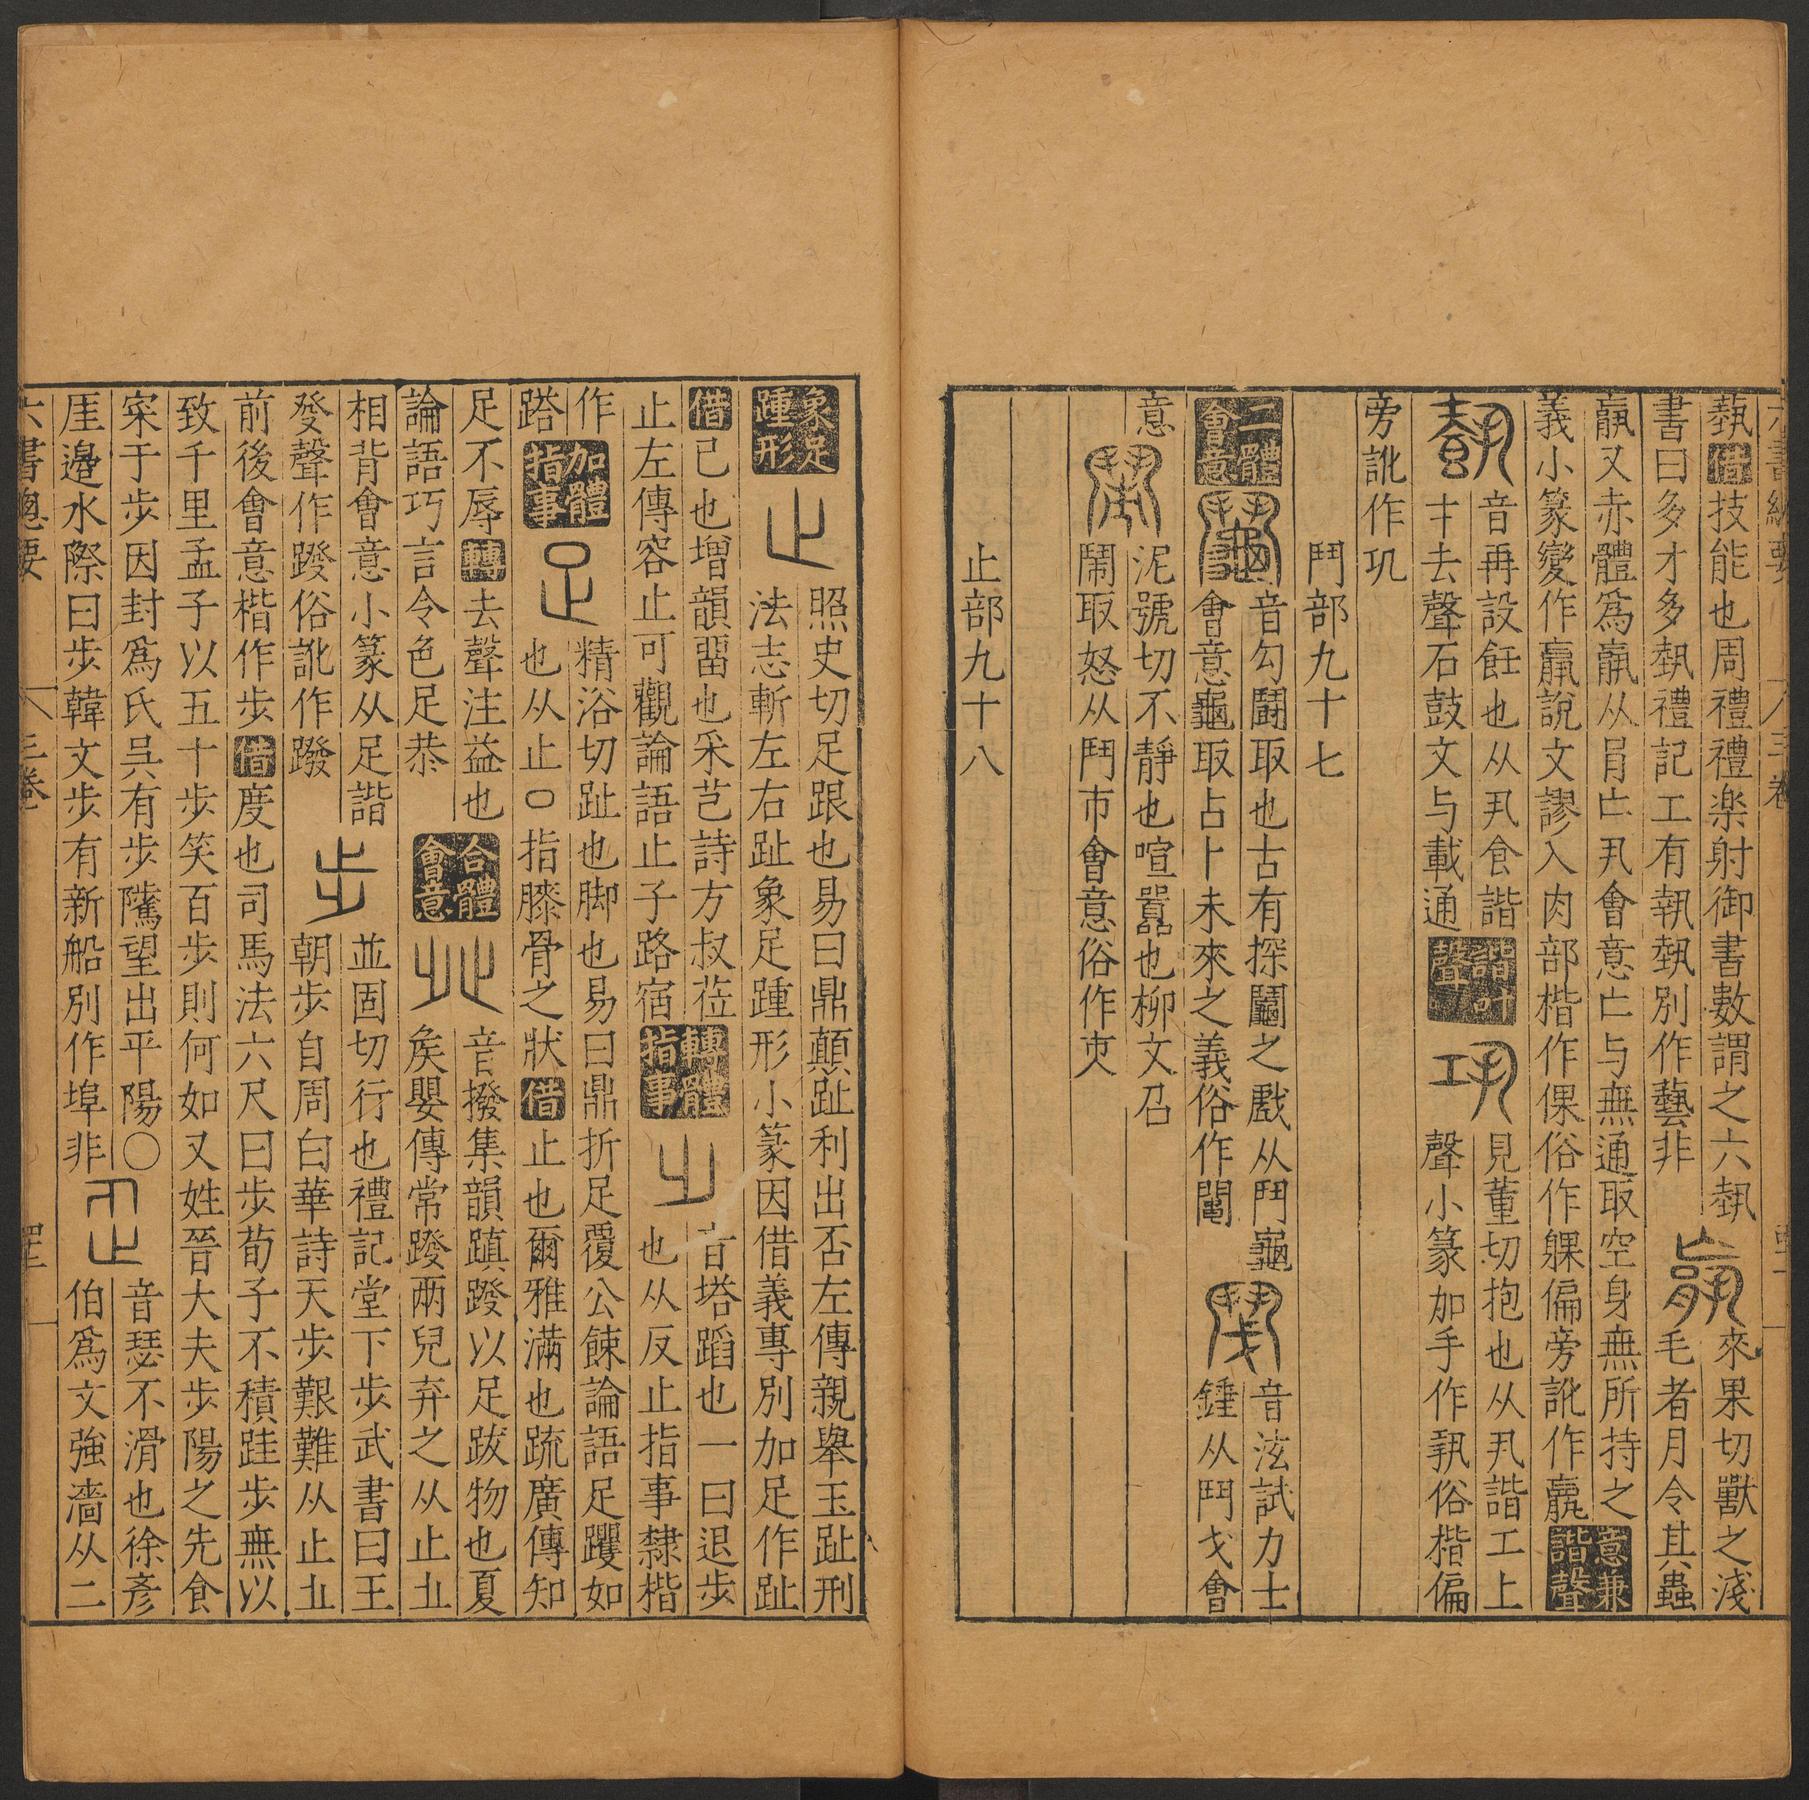 埶借技能也周禮禮楽射御書數謂之六埶
書曰多才多埶禮記工有執埶別作藝非
來果切獸之淺
毛者月令其蟲
又赤體爲从肙亡丮會意亡与無通取空身無所持之
義小篆變作說文謬入肉部楷作倮俗作躶偏旁訛作
意兼諧聲
音再設飪也从丮食諧
才去聲石鼓文与載通
諧叶聲
見董切抱也从丮諧工上
聲小篆加手作俗楷偏
旁訛作巩
鬥部九十七
二體會意
音勾鬪取也古有探鬮之戲从鬥龜
會意龜取占卜未來之義俗作
音泫試力士
錘从鬥戈會
意
泥號切不靜也喧嚚也柳文召
鬧取怒从鬥市會意俗作
止部九十八
象足踵形
止
照史切足跟也易曰鼎顛趾利出否左傳親舉玉趾刑
法志斬左右趾象足踵形小篆因借義專別加足作趾
借已也增韻畱也采芑詩方叔莅
止左傳容止可觀論語止子路宿
轉體指事
音塔蹈也一曰退步
也从反止指事隸楷
作
䠍
加體指事
足
精浴切趾也脚也易曰鼎折足覆公餗論語足躩如
也从止○指膝骨之狀借止也爾雅滿也疏廣傳知
足不辱轉去聲注益也
論語巧言令色足恭
合體會意
音撥集韻蹎蹳以足跋物也夏
矦嬰傳常蹳兩兒弃之从止
相背會意小篆从足諧
癹聲作蹳俗訛作蹳
步
並固切行也禮記堂下步武書曰王
朝步自周白華詩天步艱難从止
前後會意楷作步借度也司馬法六尺曰步荀子不積跬步無以
致千里孟子以五十步笑百步則何如又姓晉大夫步陽之先食
寀于步因封爲氏吳有步隲望出平陽○
厓邉水際曰步韓文步有新船別作埠非
音瑟不滑也徐彥
伯爲文強濇从二
六書總要
三卷